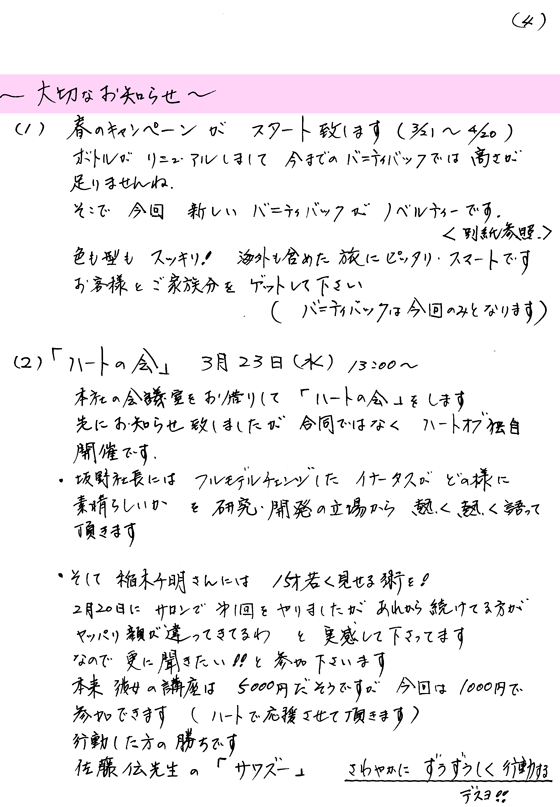 (4)
～ 大切なお知らせ ～
(1) 春のキャンペーンが スタート致します (3/21～4/20)
ボトルが リニューアルしまして 今までの バニティバックでは 高さが
足りませんね.
そこで 今回 新しい バニティバックが ノベルティーです.
<別紙参照.>
色も型も スッキリ! 海外も含めた 旅に ピッタリ・スマートです
お客様と ご家族分を ゲットして下さい
( バニティバックは 今回のみとなります)
(2)「ハートの会」 3月23日(水) 13:00～
本社の会議室をお借りして 「ハートの会」をします
先にお知らせ致しましたが 合同ではなく ハートオブ独自
開催です.
・坂野社長には フルモデルチェンジした イナータスが どの様に
素晴らしいか を 研究・開発の立場から 熱く熱く語って
頂きます
・そして 稲木千明さんには 15才若く見せる術を!
2月20日に サロンで 第1回を やりましたが あれから続けてる方が
ヤッパリ顔が違ってきてるわ と 実感して下さってます
なので 更に聞きたい!!と 参加下さいます
本来 彼女の講座は 5000円だそうですが 今回は 1000円で
参加できます ( ハートで応援させて頂きます )
行動した方の勝ちです
佐藤伝先生の 「サワズー」 さわやかに ずうずうしく 行動する
デスヨ!!